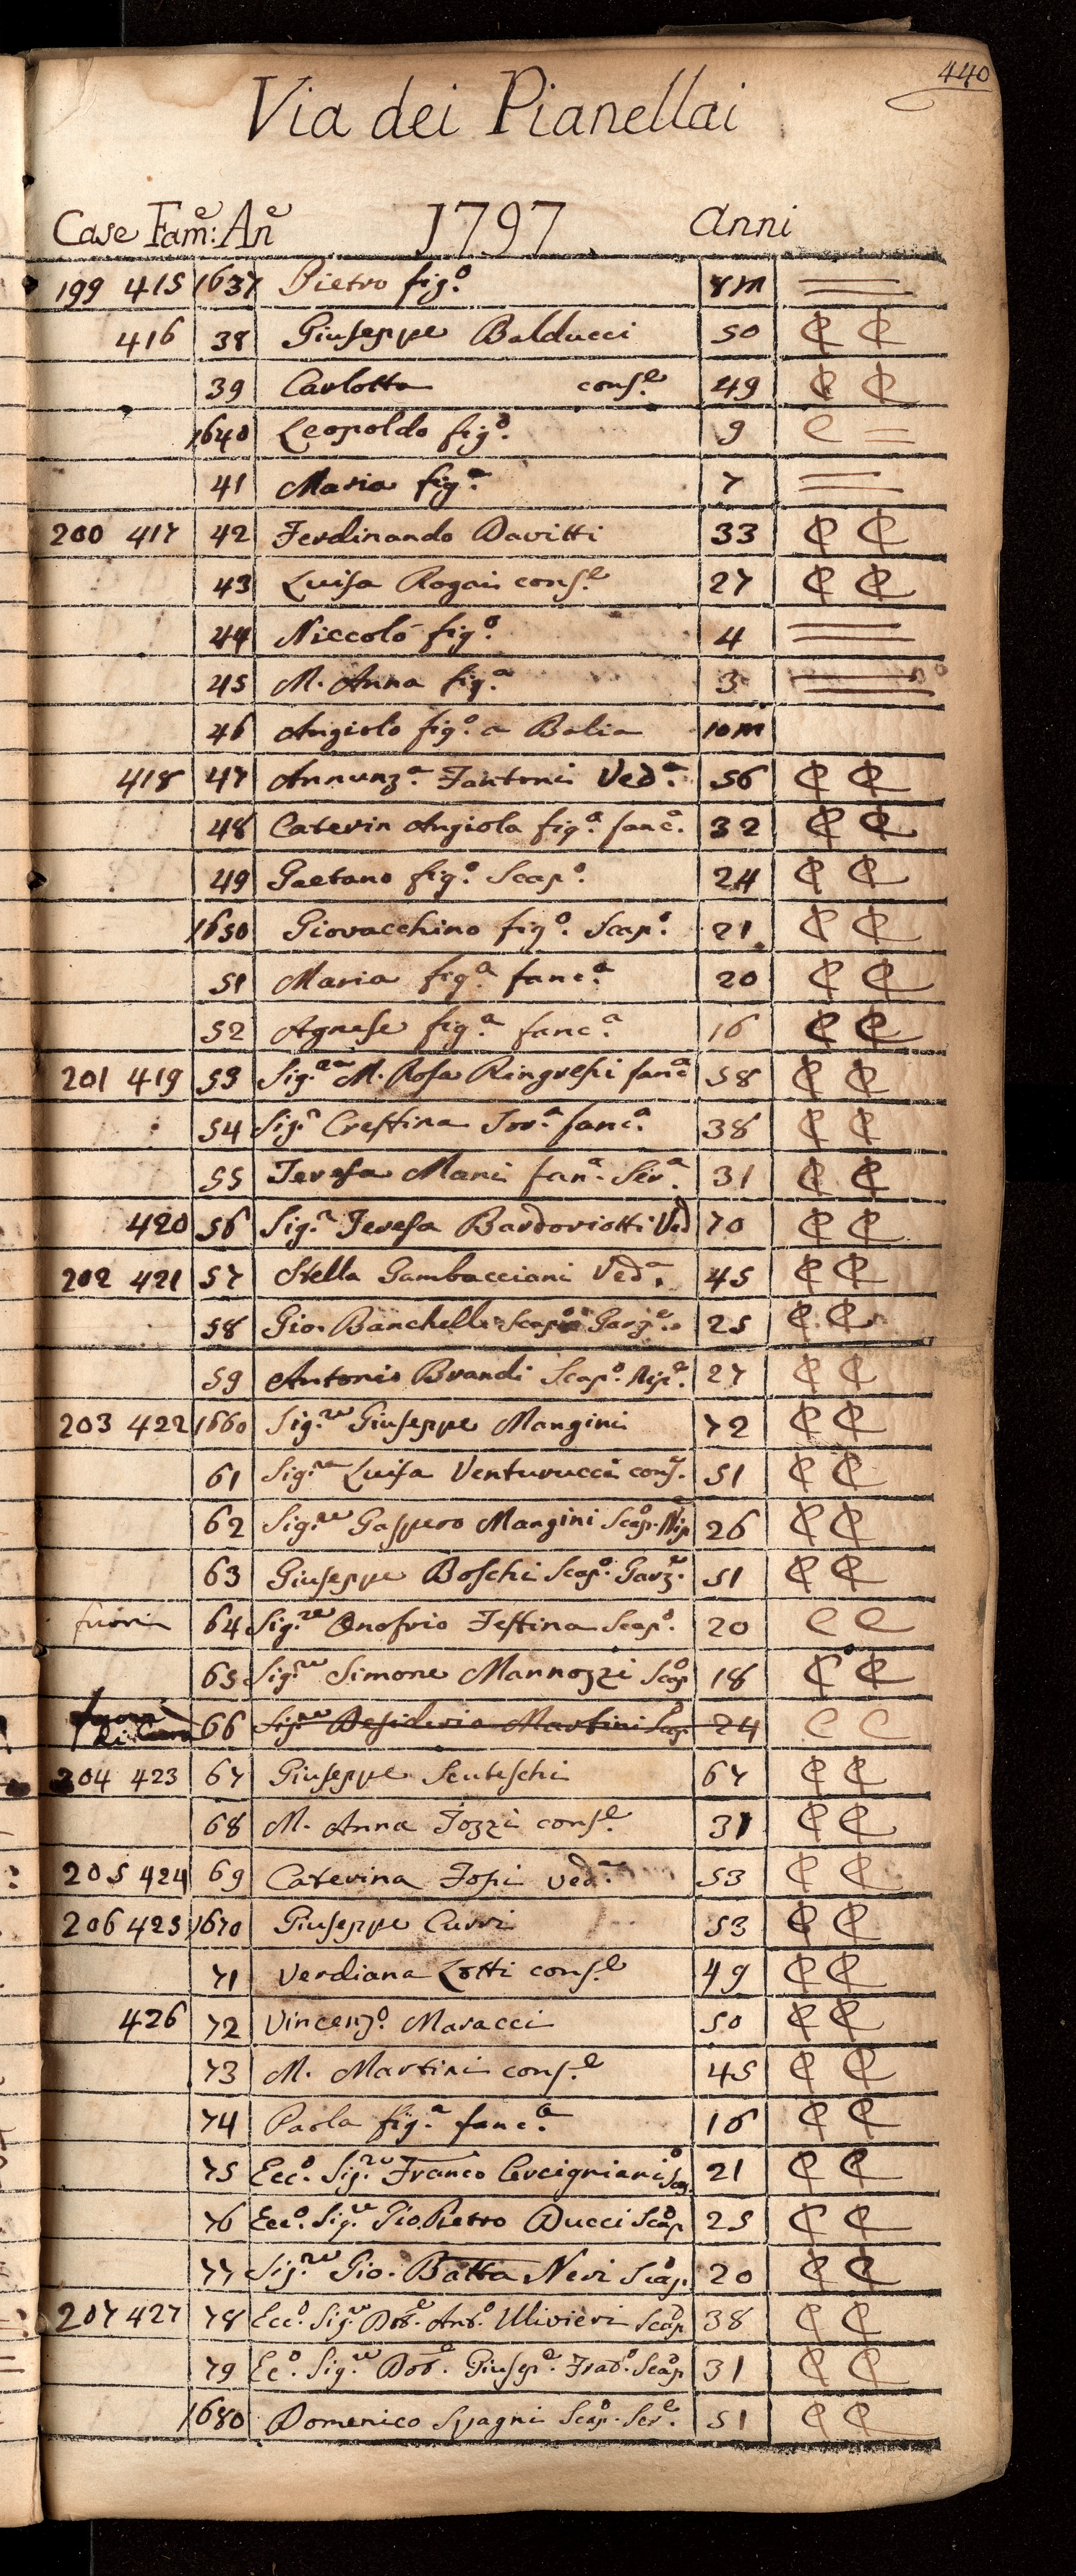 440
Via dei Pianellai
Case Fam:e An̄e 1797 Anni
199 415 1637 Pietro fig.o 8m
416 38 Giuseppe Balducci 50 C C
39 Carlotta cons.e 49 C C
1640 Leopoldo fig.o 9 C =
41 Maria fig.a 7
200 417 42 Ferdinando Davitti 33 C C
43 Luisa Rogai cons.e 27 C C
44 Niccolò fig.o 4
45 M. Anna fig.a 3
46 Angiolo fig.o a Balia 10m
418 47 Annunz.a Fantoni Ved.a 56 C C
48 Caterin Angiola fig.a fanc.a 32 C C
49 Gaetano fig.o Scap.o 24 C C
1650 Giovacchino fig.o Scap.o 21 C C
51 Maria fig.a fanc.a 20 C C
52 Agnese fig.a fanc.a 16 C C
201 419 53 Sig.ra M. Rosa Ringresi fanc.a 58 C C
54 Sig.a Crestina Sor.a fanc.a 38 C C
55 Teresa Mani fan.a Ser.a 31 C C
420 56 Sig.a Teresa Bardoriotti Ved 70 C C
202 421 57 Stella Gambacciani Ved.a 45 C C
58 Gio. Banchelli Scap.o Garz.e 25 C C
59 Antonio Brandi Scap.o Nip.e 27 C C
203 422 1660 Sig.re Giuseppe Mangini 72 C C
61 Sig.ra Luisa Venturucci cons. 51 C C
62 Sig.re Gaspero Mangini Scap.o Nip 26 C C
63 Giuseppe Boschi Scap.o Garz.e 51 C C
fuori 64 Sig.re Onofrio Testina Scap.o 20 C C
65 Sig.re Simone Mannozzi Scap.o 18 C C
fuori di Cura 66 Sig.re Desiderio Martini Scap. 24 C C
204 423 67 Giuseppe Scuteschi 67 C C
68 M. Anna Tozzi cons.e 31 C C
205 424 69 Caterina Topi ved.a 53 C C
206 425 1670 Giuseppe Curri 53 C C
71 Verdiana Lotti cons.e 49 C C
426 72 Vincenz.o Maracci 50 C C
73 M. Martini cons.e 45 C C
74 Paola fig.a fanc.a 16 C C
75 Ecc.o Sig.re Franco Cercigniani Scap.o 21 C C
76 Ecc.o Sig.re Gio. Pietro Ducci Scap.o 25 C C
77 Sig.re Gio. Batta Neri Scap.o 20 C C
207 427 78 Ecc.o Sig.re Dot.e Ant.o Ulivieri Scap.o 38 C C
79 Ec.o Sig.re Dot.e Giusep.e Frat.o Scap.o 31 C C
1680 Domenico Spagni Scap.o Ser.e 51 C C